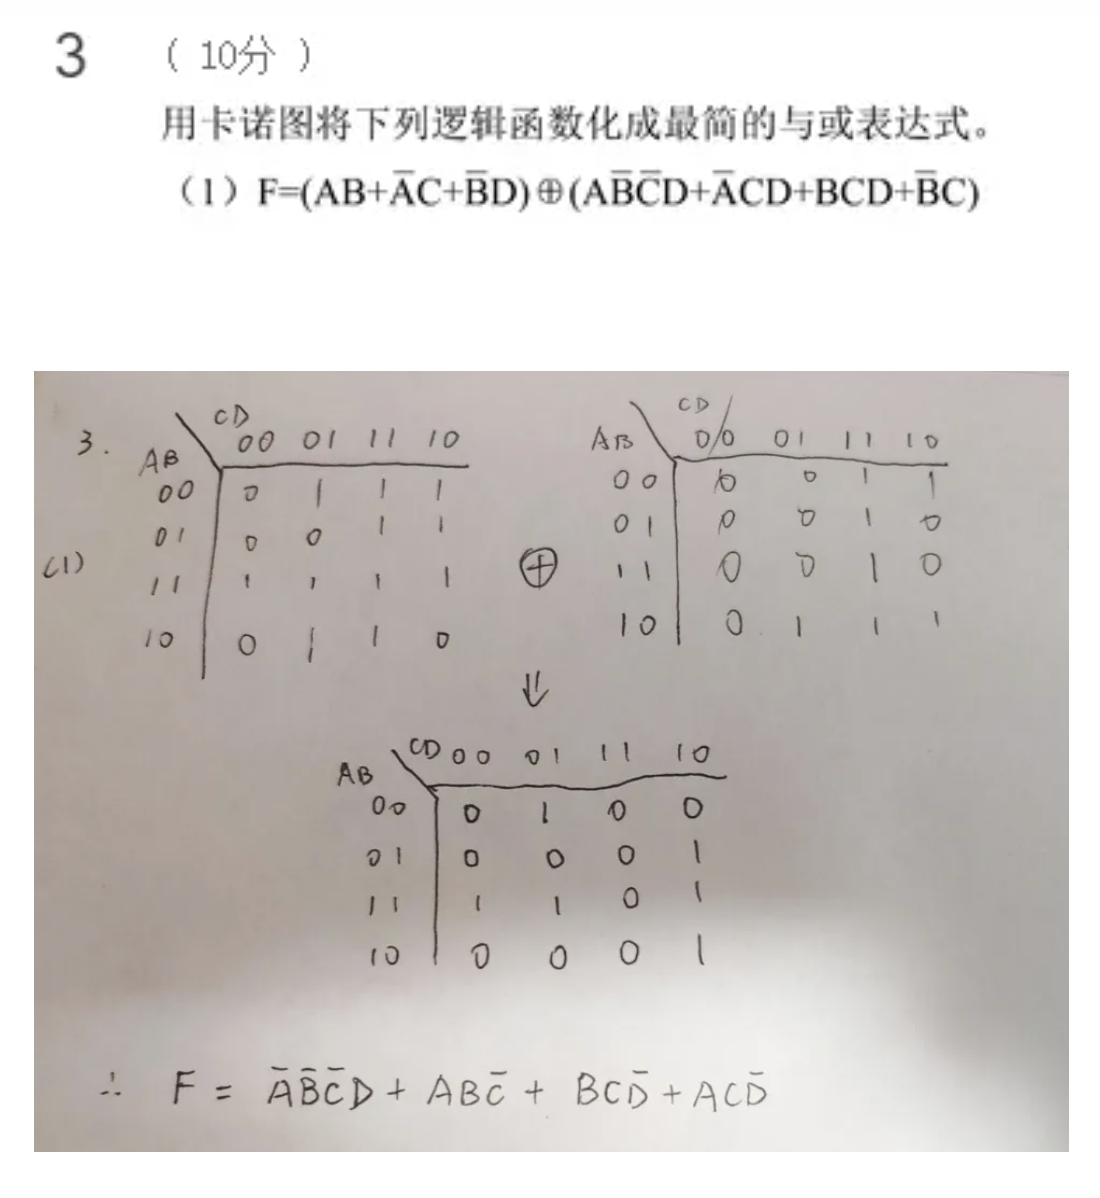 3 ( 10分 )
用卡诺图将下列逻辑函数化成最简的与或表达式。
(1) F=(AB+A̅C+B̅D)⊕(AB̅C̅D+A̅CD+BCD+B̅C)
3.
(1)
CD
AB 00 01 11 10
00 0 1 1 1
01 0 0 1 1
11 1 1 1 1
10 0 1 1 0
⊕
CD
AB 00 01 11 10
00 0 0 1 1
01 0 0 1 0
11 0 0 1 0
10 0 1 1 1
⇓
AB CD 00 01 11 10
00 0 1 0 0
01 0 0 0 1
11 1 1 0 1
10 0 0 0 1
∴ F = A̅B̅C̅D + ABC̅ + BCD̅ + ACD̅